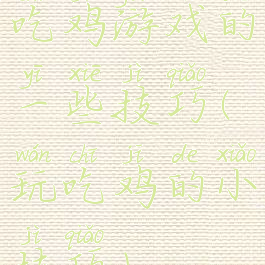 吃鸡游戏的
yī xiē jì qiǎo
一些技巧(
wán chī jī de xiǎo
玩吃鸡的小
jì qiǎo